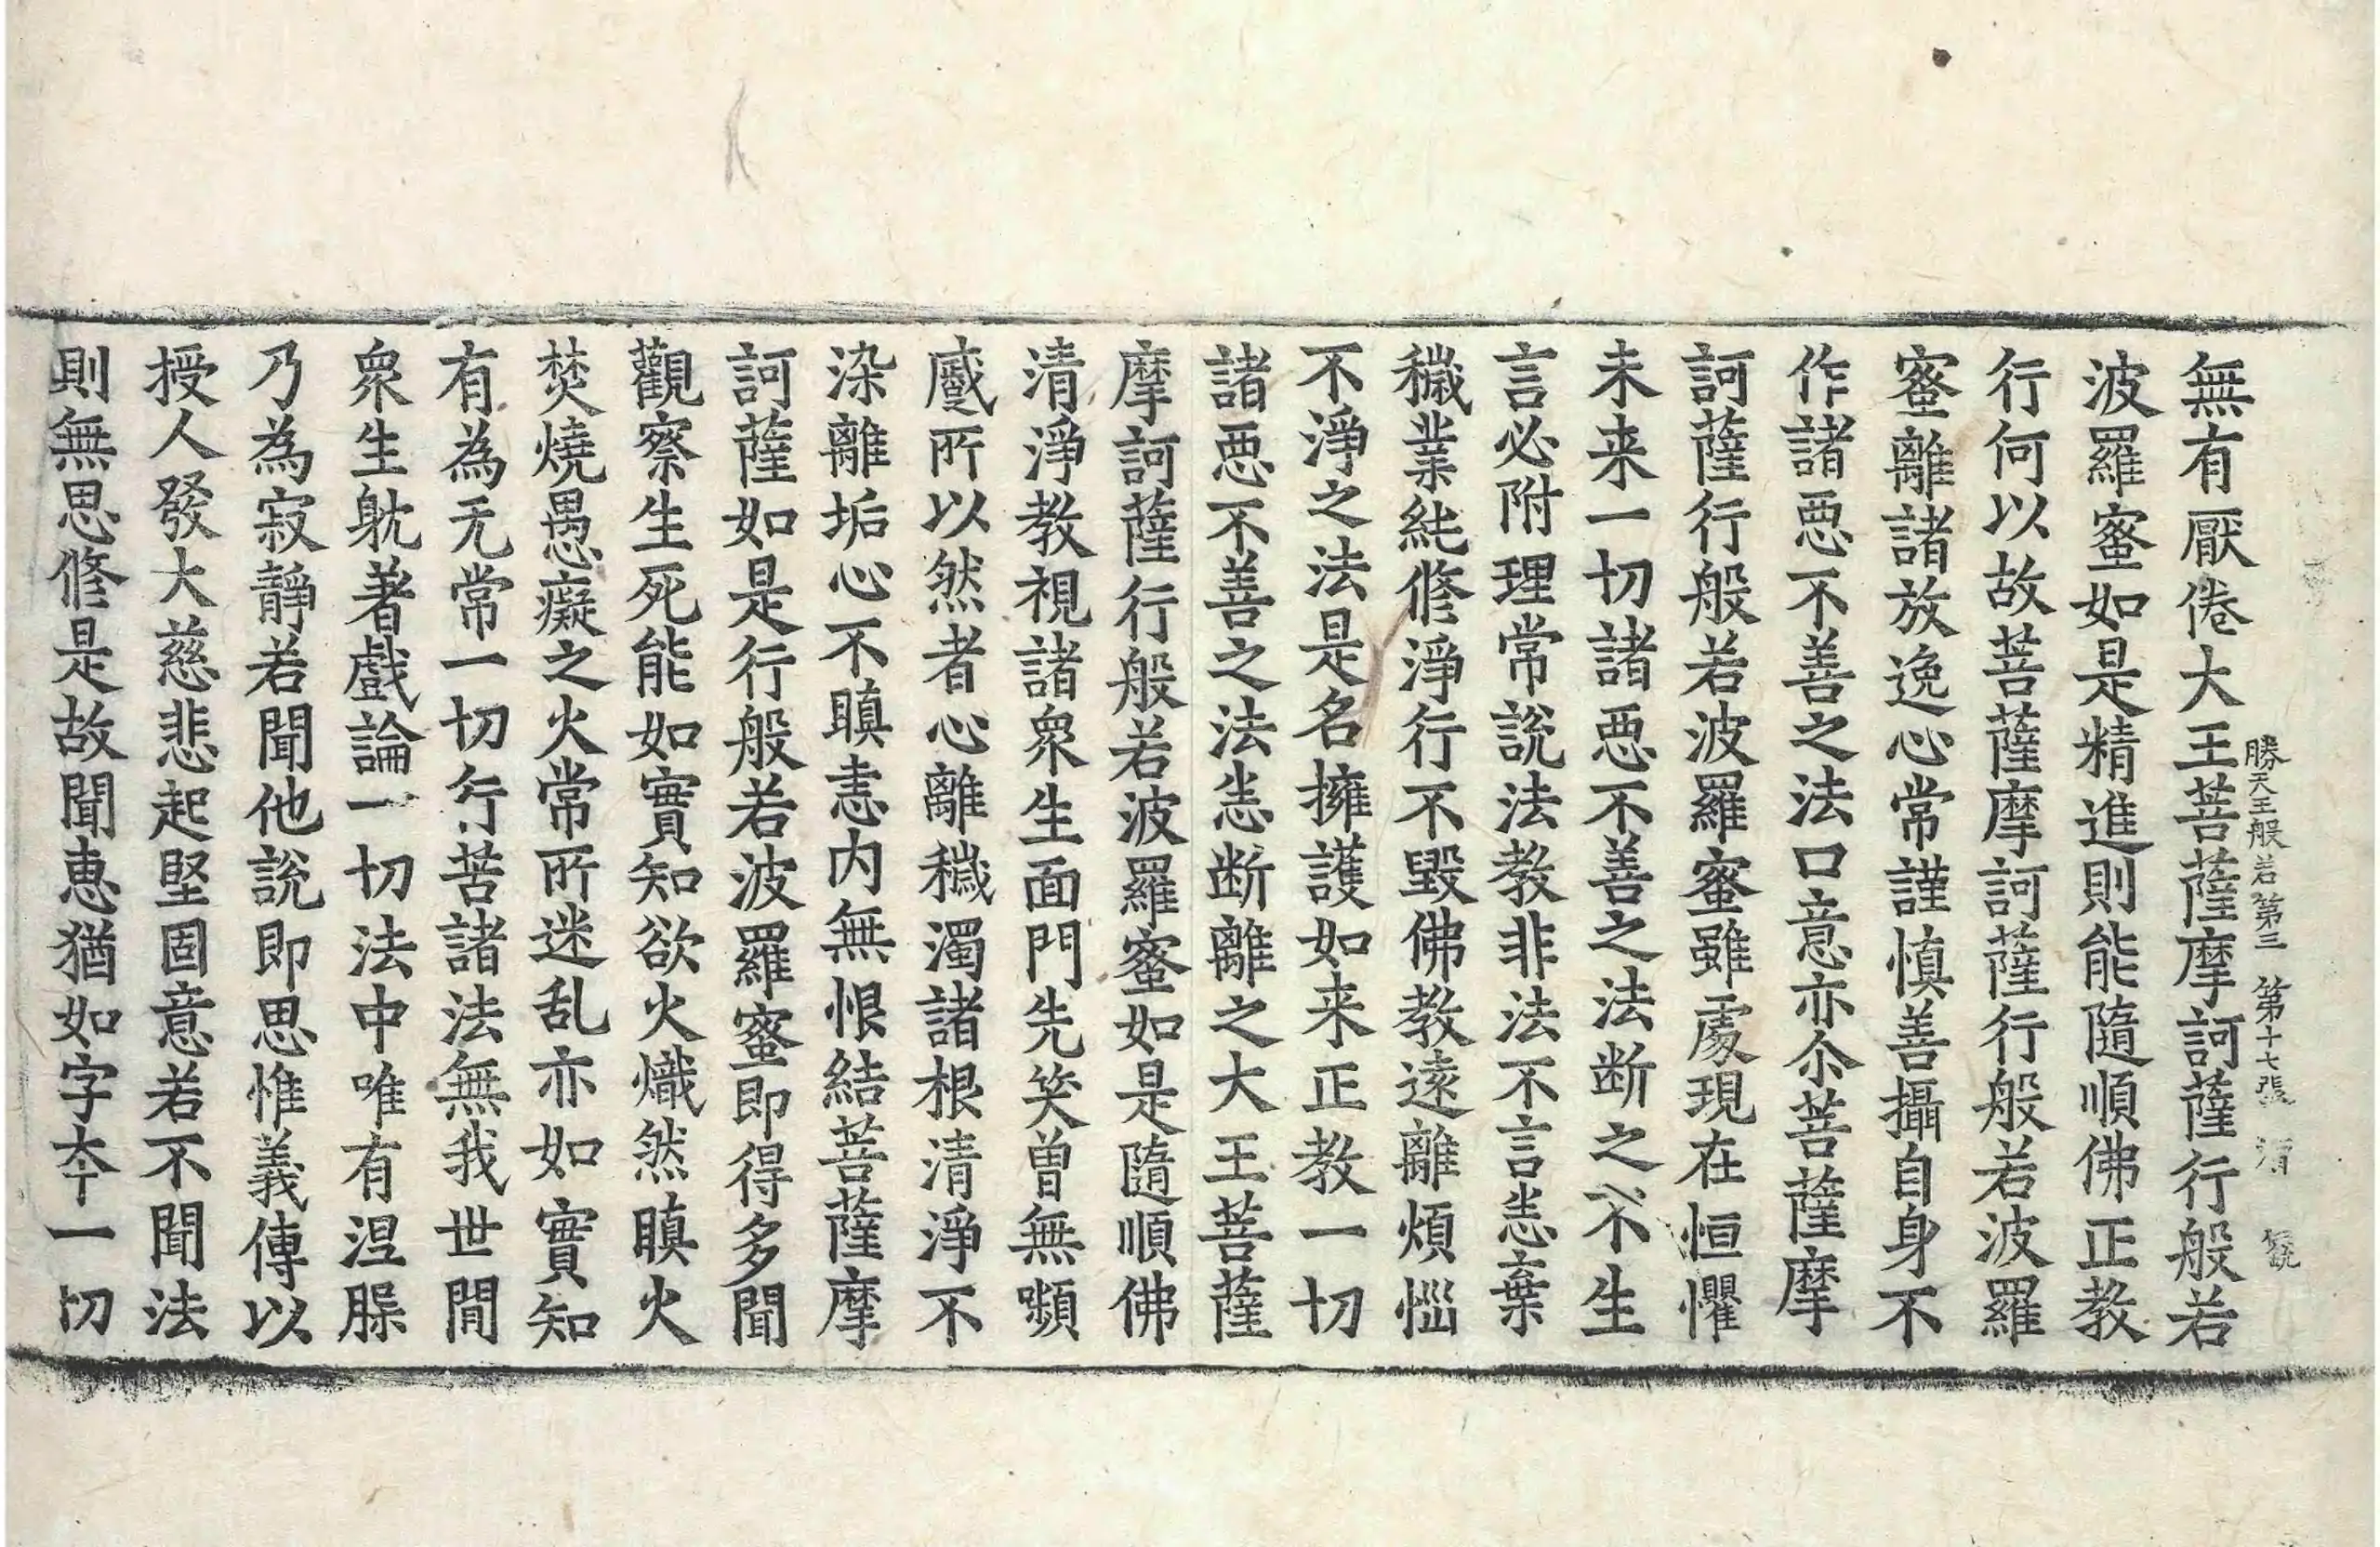 無有厭倦大王菩薩摩訶薩行般若
勝天王般若第三 第十七張 清
波羅蜜如是精進則能隨順佛正教
行何以故菩薩摩訶薩行般若波羅
蜜離諸放逸心常謹慎善攝自身不
作諸惡不善之法口意亦尒菩薩摩
訶薩行般若波羅蜜雖處現在恒懼
未来一切諸惡不善之法断之不生
言必附理常說法教非法不言恙棄
穢業純修淨行不毀佛教遠離煩惱
不淨之法是名擁護如来正教一切
諸惡不善之法恙断離之大王菩薩
摩訶薩行般若波羅蜜如是隨順佛
清淨教視諸衆生面門先笑曾無嚬
慼所以然者心離穢濁諸根清淨不
染離垢心不瞋恚内無恨結菩薩摩
訶薩如是行般若波羅蜜即得多聞
觀察生死能如實知欲火熾然瞋火
焚燒愚癡之火常所迷乱亦如實知
有為无常一切行苦諸法無我世間
衆生躭著戲論一切法中唯有涅槃
乃為寂靜若聞他說即思惟義傳以
授人發大慈悲起堅固意若不聞法
則無思修是故聞惠猶如字夲一切